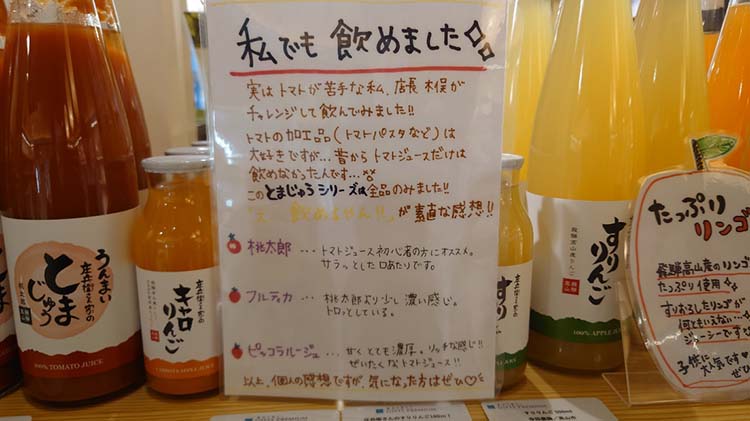 私でも飲めました
実はトマトが苦手な私、店長 木俣が
チャレンジして飲んでみました!!
トマトの加工品(トマトパスタなど)は
大好きですが…昔からトマトジュースだけは
飲めなかったんです…
このとまじゅうシリーズは全品のみました!!
「え、飲めちゃう!!」が素直な感想!!
桃太郎 … トマトジュース初心者の方にオススメ。
サラッとした口あたりです。
フルティカ … 桃太郎より少し濃い感じ。
トロッとしている。
ピッコラルージュ … 甘くとても濃厚。リッチな感じ!!
ぜいたくなトマトジュース!!
以上、個人の感想ですが、気になった方はぜひ♡
うんまい
とまじゅう
桃太郎
100% TOMATO JUICE
キャロりんご
CARROTS APPLE JUICE
すり
飛騨高山産りんご
すりりんご
100% APPLE JUICE
たっぷり
リンゴ
飛騨高山産のリンゴ
たっぷり使用
すりおろしたリンゴが
何ともいえない…
ジューシーです
子供に
大人気です
ぜひ